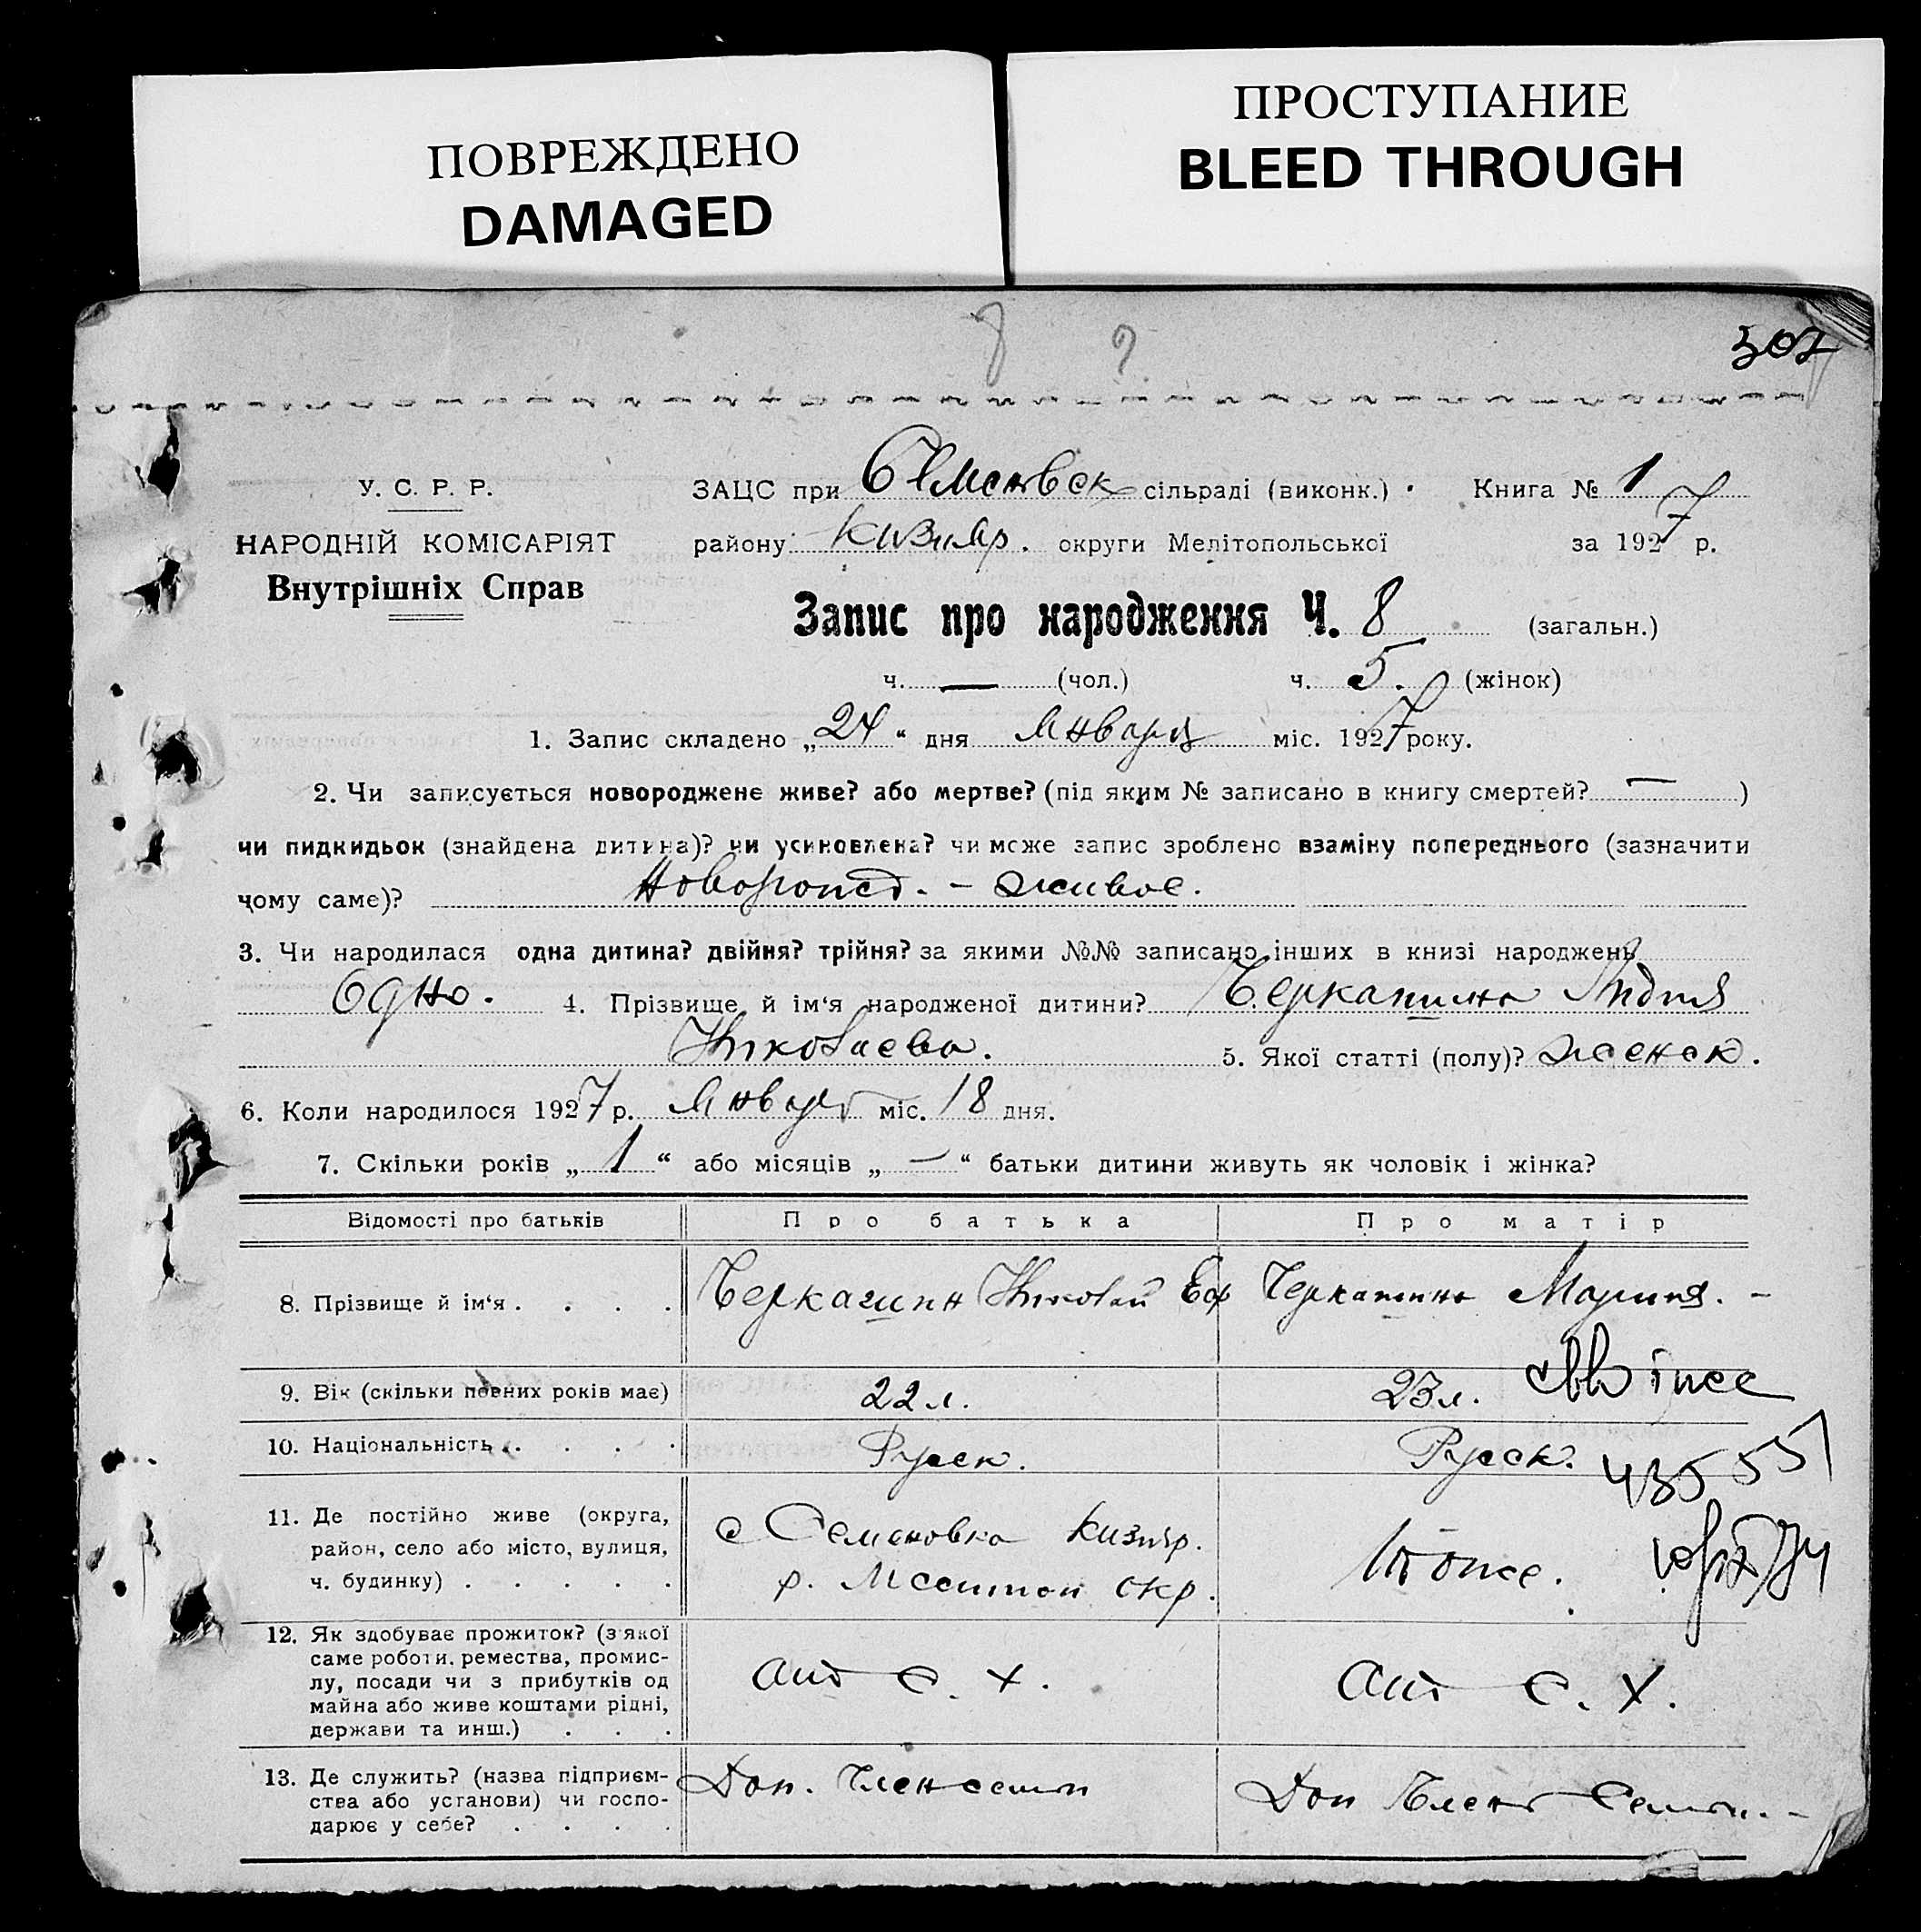 ПОВРЕЖДЕНО
DAMAGED
ПРОСТУПАНИЕ
BLEED THROUGH
8 9
307
У. С. Р. Р.
НАРОДНІЙ КОМІСАРІЯТ
Внутрішніх Справ
ЗАЦС при Семеновск сільраді (виконк.) Книга № 1
району Кизияр. округи Мелітопольської за 1927 р.
Запис про народження Ч. 8 (загальн.)
ч. — (чол.) ч. 5. (жінок)
1. Запис складено „24“ дня Января міс. 1927 року.
2. Чи записується новороджене живе? або мертве? (під яким № записано в книгу смертей? — )
чи пидкидьок (знайдена дитина)? чи усиновлена? чи може запис зроблено взаміну попереднього (зазначити
чому саме)? Новорожд. - живое.
3. Чи народилася одна дитина? двійня? трійня? за якими №№ записано інших в книзі народжень
Одно. 4. Прізвище й ім‘я народженої дитини? Черкашина Лидия
Николаева. 5. Якої статті (полу)? женск.
6. Коли народилося 1927 р. Января міс. 18 дня.
7. Скільки років „1“ або місяців „—“ батьки дитини живуть як чоловік і жінка?
Відомості про батьків Про батька Про матір
8. Прізвище й ім‘я . . . . Черкашин Николай Еф Черкашина Мария. -
9. Вік (скільки повних років має) 22 л. 23 л.
10. Національність . . . . Русск. Русск.
11. Де постійно живе (округа,
район, село або місто, вулиця,
ч. будинку) . . . . .
с Семеновка Кизияр.
р. Мелитоп окр.
Тоже.
12. Як здобуває прожиток? (з якої
саме роботи, ремества, промис-
лу, посади чи з прибутків од
майна або живе коштами рідні,
держави та инш.) . . .
от С. Х.
от С. Х.
13. Де служить? (назва підприєм-
ства або установи) чи госпо-
дарює у себе? . . . .
Доп. Член семьи
Доп Член Семьи. -